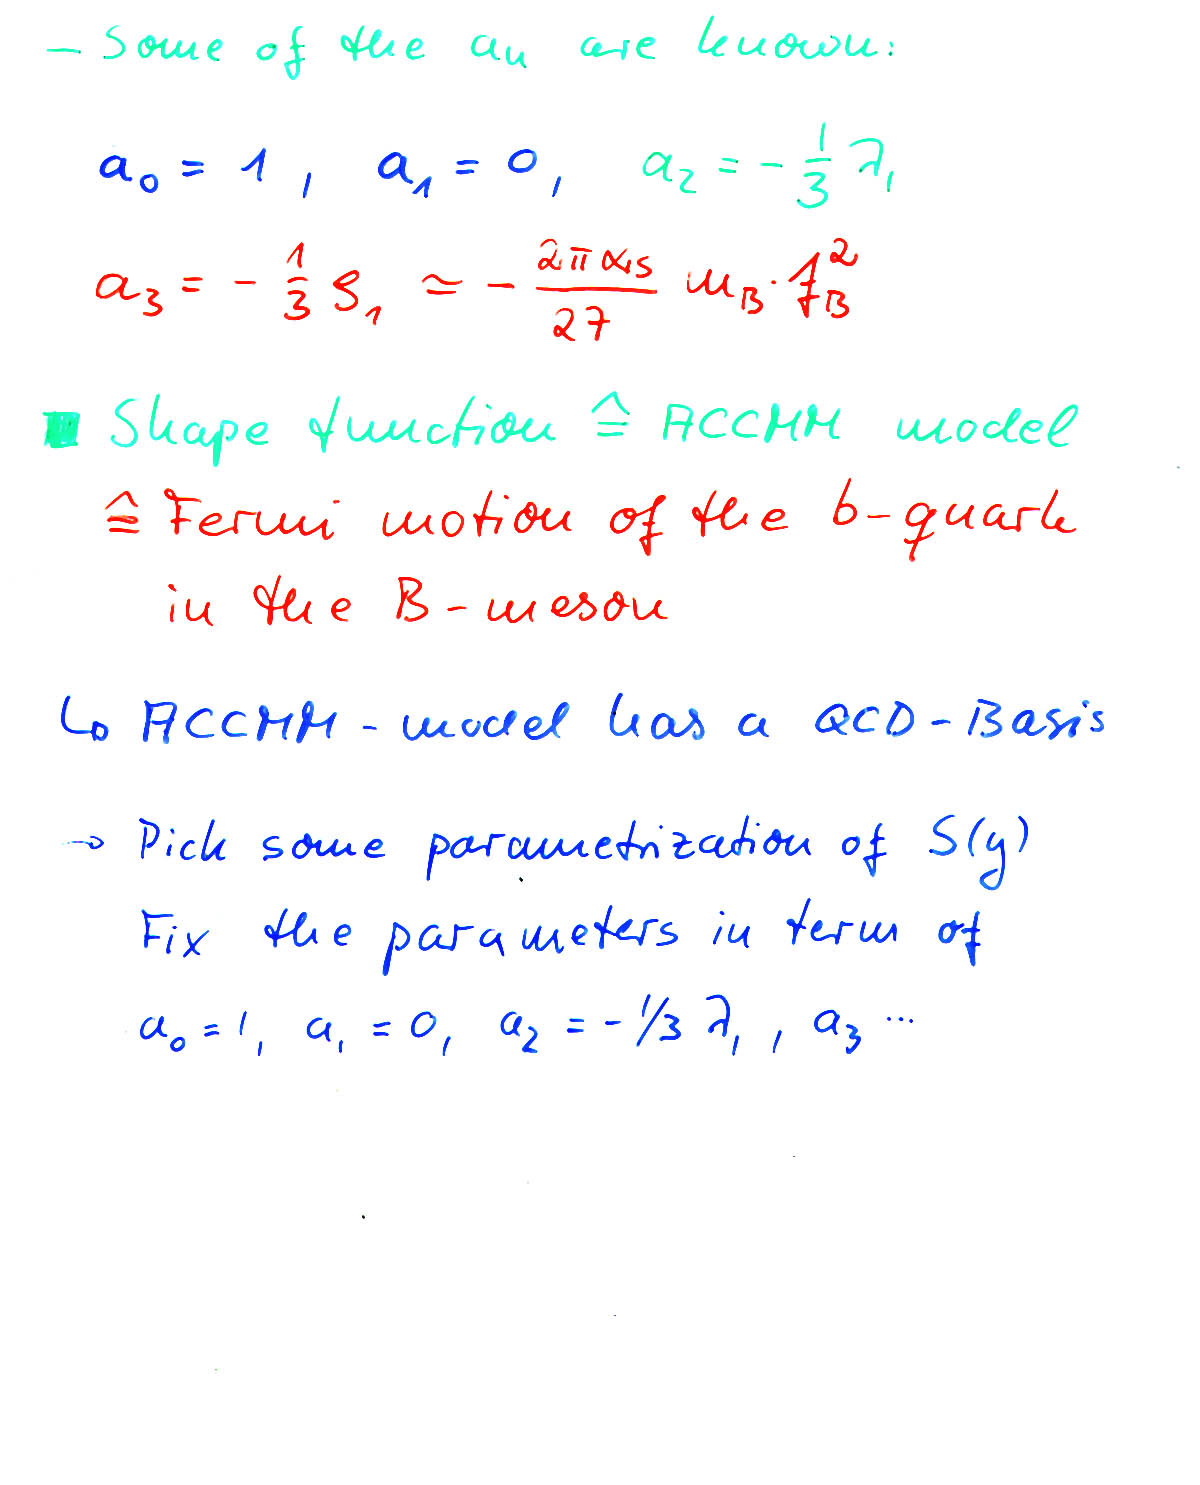 – Some of the aₙ are known:
a₀ = 1, a₁ = 0, a₂ = - 1/3 λ₁
a₃ = - 1/3 ρ₁ ≃ - 2παs/27 m_B · f_B²
Shape function ≙ ACCMM model
≙ Fermi motion of the b-quark
in the B-meson
↳ ACCMM-model has a QCD-Basis
→ Pick some parametrization of S(y)
Fix the parameters in term of
a₀ = 1, a₁ = 0, a₂ = - 1/3 λ₁, a₃ ...